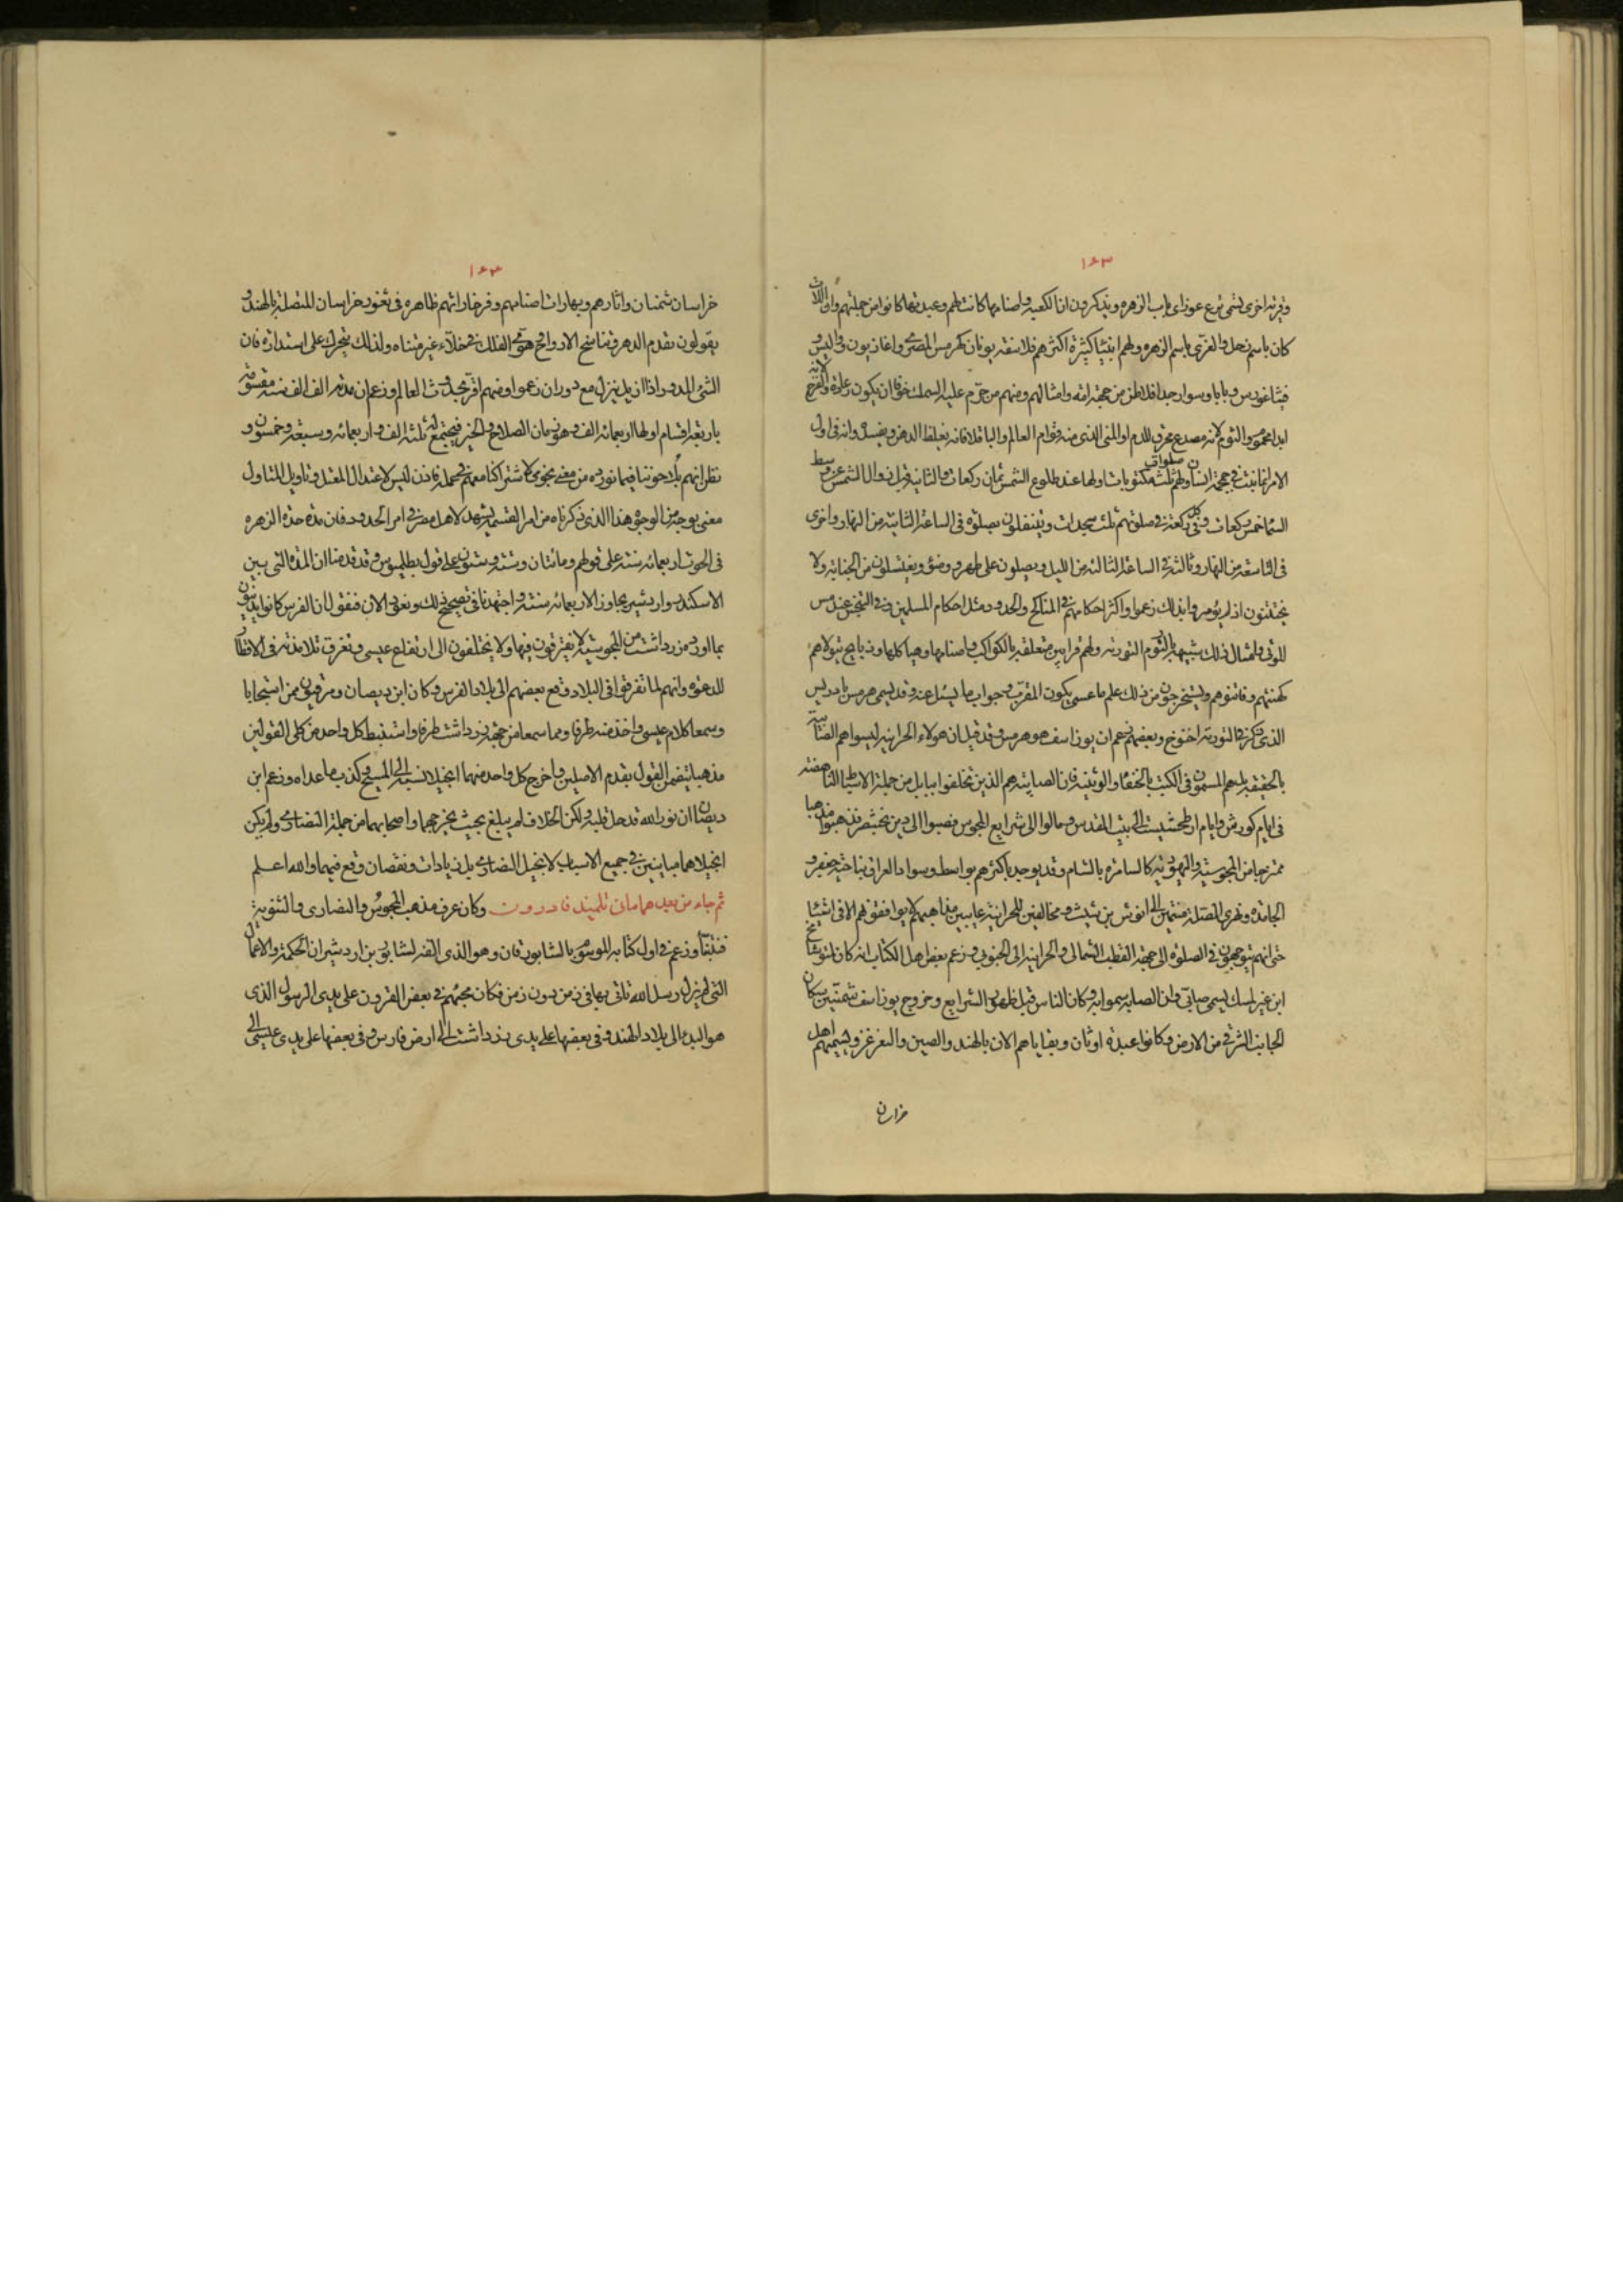 ١٦٣
وقرية اخرى تسمى ترع عوز اى باب الزهره ويذكرون ان الكعبه واصنامها كانت لهم وعبدتها كانوا من جملتهم وان اللات
كان باسم زحل والعزى باسم الزهره ولهم انبياء كثيرة اكثرهم فلاسفه يونان كهرمس المصرى واغاذيمون وواليس و
فيثاغورس وبابا وسوار جد افلاطن من جهة امه وامثالهم ومنهم من حرم عليه السمك خوفا ان يكون رعادة والفرخ لانه
ابدا محموم والثوم لانه مصدع محرق للدم او المنى الذى منه قوام العالم والباقلا فانه يغلظ الذهن ويفسده وانه فى اول
الامر انما نبت فى جمجمة انسان ولهم ثلث صلوات مكتوبات اولها عند طلوع الشمس ثمان ركعات والثانية قبل زوال الشمس عن وسط
السماء خمس ركعات وفى كل ركعة فى صلوتهم ثلث سجدات ويتنفلون بصلوة فى الساعة الثانية من النهار واخرى
فى التاسعة من النهار وثالثة فى الساعة الثالثة من الليل ويصلون على طهر ووضوء ويغتسلون من الجنابة ولا
يختتنون اذ لم يؤمروا بذلك زعموا واكثر احكامهم فى المناكح والحدود مثل احكام المسلمين وفى التنجس عند مس
الموتى وامثال ذلك شبيهة بالتورية ولهم قرابين متعلقة بالكواكب واصنامها وهياكلها وذبايح يتولاهم
كهنتهم وفاتنوهم ويستخرجون من ذلك علم ما عسى يكون المقرب وجواب ما يسئل عنه وقد يسمى هرمس بادريس
الذى ذكر فى التورية اخنوخ وبعضهم زعم ان بوذاسف هو هرمس وقد قيل ان هولاء الحرانية ليسوا هم الصابية
بالحقيقة بل هم المسمون فى الكتب بالحنفاء والوثنية فان الصابية هم الذين تخلفوا ببابل من جملة الاسباط الناهضه
فى ايام كورش وايام ارطحشست الى بيت المقدس ومالوا الى شرايع المجوس فصبوا الى دين بختنصر فذهبوا مذهبا
ممتزجا من المجوسية واليهودية كالسامرة بالشام وقد يوجد اكثرهم بواسط وسواد العراق بناحية جعفر و
الجامدة ونهرى الصلة منتمين الى انوش بن شيث ومخالفين للحرانية عايبين مذاهبهم لا يوافقونهم الا فى اشياء
حتى انهم يتوجهون فى الصلوة الى جهة القطب الشمالى والحرانية الى الجنوبى وزعم بعض اهل الكتاب انه كان لمتوشالخ
ابن غير لمك يسمى صابى وان الصابية سموا به وكان الناس قبل ظهور الشرايع وخروج بوذاسف شمنيين سكان
الجانب الشرقى من الارض وكانوا عبدة اوثان وبقاياهم الان بالهند والصين والتغزغز ويسميهم اهل
خراسان
١٦٣
خراسان شمنان واثارهم وبهارات اصنامهم وفرخاراتهم ظاهره فى ثغور خراسان المتصلة بالهند و
يقولون بقدم الدهر وتناسخ الارواح وهوى الفلك فى خلاء غير متناه ولذلك يتحرك على استدارة فان
الشئ المدور اذا ازيل ينزل مع دوران زعموا ومنهم اقر بحدوث العالم وزعم ان مدته الف الف سنة مقسومة
باربعة اقسام اولها اربعمائه الف وهو زمان الصلاح والخير فيجتمع له ثلثه الف واربعمائه وسبعه وخمسون و
نظن انهم يلاحوننا فيما نورده من معنى نجومى لاشتراكنا معهم فى محمله فاذن ليس لاعتدال المعتدل وتاويل المتاول
معنى بوجه من الوجوه هذا الذى ذكرناه من امر القسمة يشهد لاهل مصر فى امر الحدود فان مده حده الزهره
فى الحوت اربعمائه سنة على قولهم ومائتان وستة وستون على قول بطلميوس وقد قدمنا ان المدة التى بين
الاسكندر واردشير يجاوز الاربعمائه سنة واجتهدنا فى تصحيح ذلك ونعود الان فنقول ان الفرس كانوا يدينون
بما اورده زرداشت من المجوسية لا يفترقون فيها ولا يختلفون الى ارتفاع عيسى وتفرق تلامذته فى الاقطار
للدعوه وانهم لما تفرقوا فى البلاد وقع بعضهم الى بلاد الفرس وكان ابن ديصان ومرقيون ممن استجابا
وسمعا كلام عيسى واخذا منه طرفا ومما سمعا من جهة زرداشت طرفا واستنبط كل واحد من كلى القولين
مذهبا يتضمن القول بقدم الاصلين واخرج كل واحد منهما انجيلا نسبه الى المسيح وكذب ما عداه وزعم ابن
ديصان ان نور الله قد حل قلبه ولكن الخلاف لم يبلغ بحيث يخرجهما واصحابهما من جملة النصارى ولم يكن
انجيلاهما مباينين فى جميع الاسباب لانجيل النصارى بل زيادات ونقصان وقع فيهما والله اعلم
ثم جاء من بعدهما مانى تلميذ فادرون وكان عرف مذهب المجوس والنصارى والثنوية
فتنبأ وزعم فى اول كتابه الموسوم بالشابورقان وهو الذى الفه لشابور بن اردشير ان الحكمة والاعمال
التى لم يزل رسل الله تاتى بها فى زمن دون زمن فكان مجيئهم فى بعض القرون على يدى الرسول الذى
هو البد الى بلاد الهند وفى بعضها على يدى زرداشت الى ارض فارس وفى بعضها على يدى عيسى الى